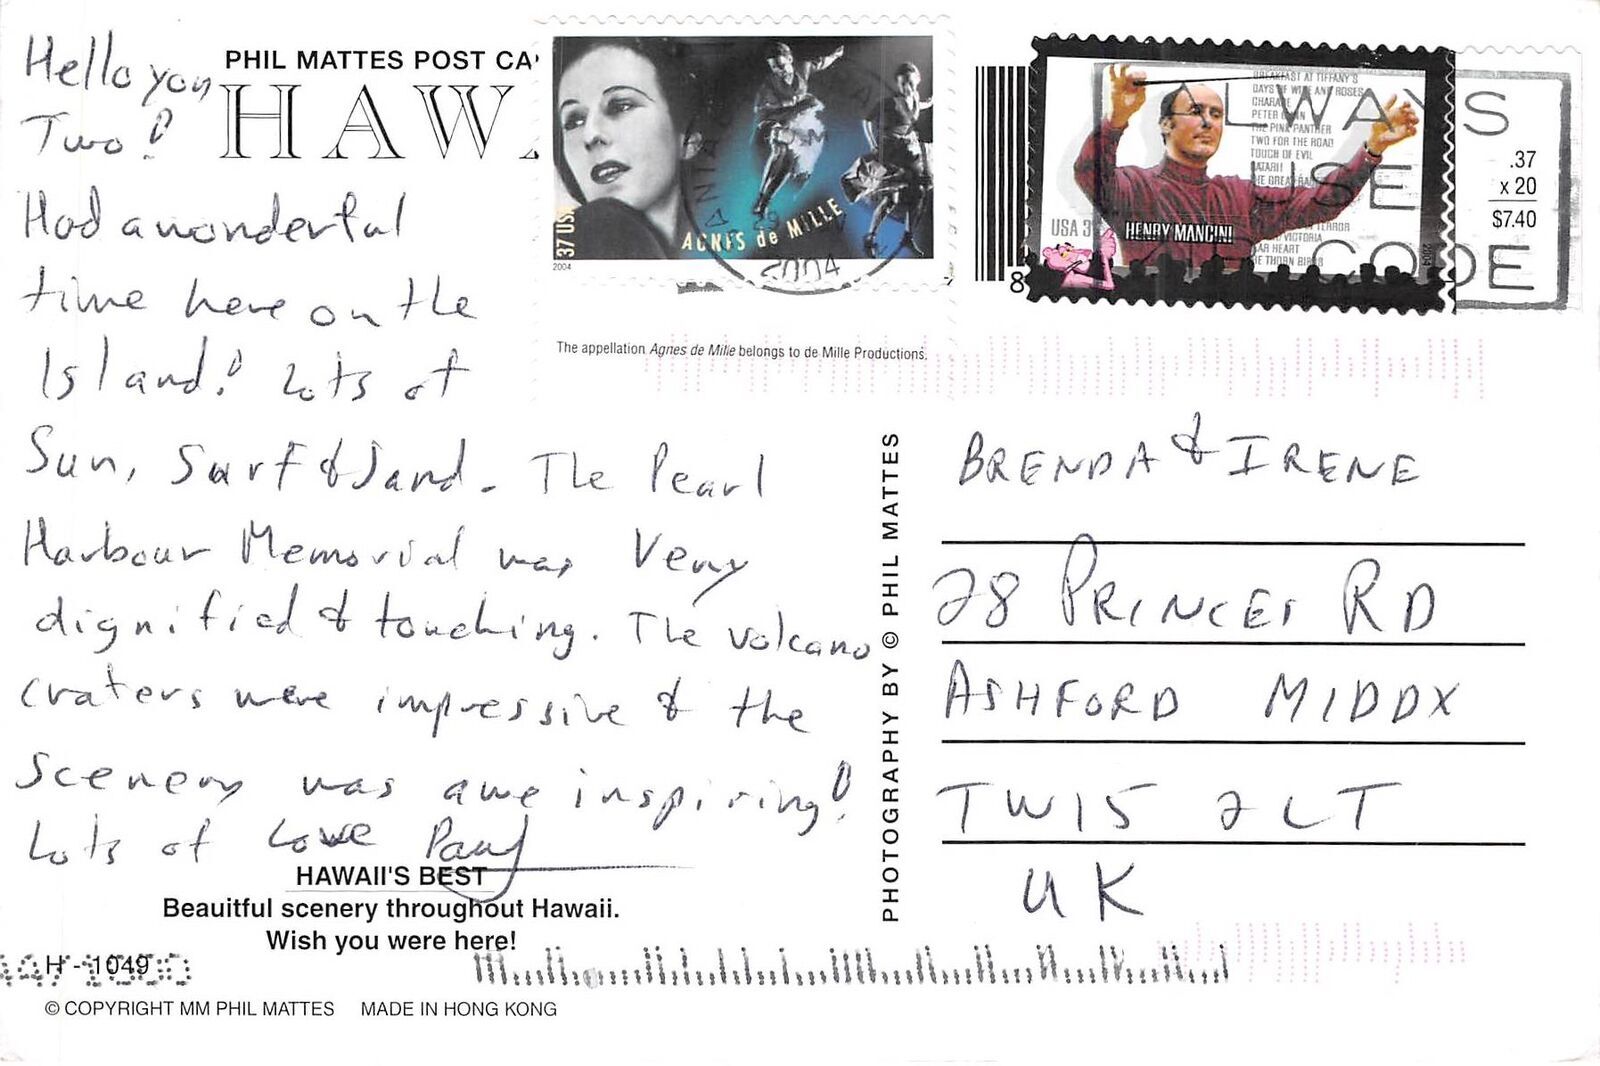 Hello you
Two!
Had a wonderful
time here on the
Island! Lots of
Sun, Surf & Sand. The Pearl
Harbour Memorial was Very
dignified & touching. The volcano
craters were impressive & the
Scenery was awe inspiring!
Lots of Love Paul
PHIL MATTES POST CA
HAWA
37 USA
2004
AGNES de MILLE
2004
The appellation Agnes de Mille belongs to de Mille Productions.
8
BREAKFAST AT TIFFANY'S
DAYS OF WINE AND ROSES
CHARADE
PETER GUNN
THE PINK PANTHER
TWO FOR THE ROAD
TOUCH OF EVIL
HATARI!
VICTORIA
THE THORN BIRDS
USA 3
HENRY MANCINI
2004
ALWAYS
USE
CODE
.37
x 20
$7.40
PHOTOGRAPHY BY © PHIL MATTES
BRENDA & IRENE
28 PRINCES RD
ASHFORD MIDDX
TW15 2LT
UK
HAWAII'S BEST
Beauitful scenery throughout Hawaii.
Wish you were here!
H - 1049
© COPYRIGHT MM PHIL MATTES MADE IN HONG KONG